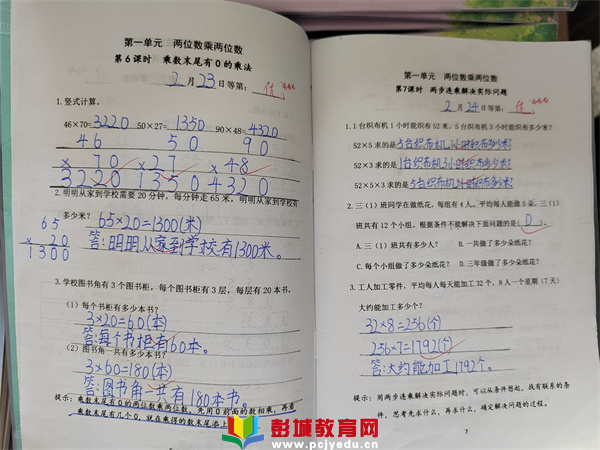 第一单元 两位数乘两位数
第6课时 乘数末尾有0的乘法
2月23日等第：佳
1. 竖式计算。
46×70=3220 50×27=1350 90×48=4320
46 50 90
×70 ×27 ×48
3220 1350 4320
2. 明明从家到学校需要20分钟，每分钟走65米，明明从家到学校有
多少米？65×20=1300(米)
65
×20
1300
答：明明从家到学校有1300米。
3. 学校图书角有3个图书柜，每个图书柜有3层，每层有20本书。
(1) 每个书柜有多少本书？
3×20=60(本)
答：每个书柜有60本。
(2) 图书角一共有多少本书？
3×60=180(本)
答：图书角一共有180本书。
提示：乘数末尾有0的两位数乘两位数，先用0前面的数相乘，再看
乘数末尾有几个0，就在乘得的数末尾添上
第一单元 两位数乘两位数
第7课时 两步连乘解决实际问题
2月24日等第：佳
1. 1台织布机1小时能织布52米，5台织布机3小时能织布多少米？
52×5求的是5台织布机1小时织布多少米？
52×3求的是1台织布机3小时织布多少米？
52×5×3求的是5台织布机3小时织布多少米？
2. 三（1）班同学在做纸花，每组有4人，平均每人能做5朵，三（1）
班共有12个小组，根据条件不能解决下面问题的是（D）。
A. 三（1）班共有多少人？ B. 一共做了多少朵纸花？
C. 每个小组做了多少朵纸花？ D. 三年级做了多少朵纸花？
3. 工人加工零件，平均每人每天能加工32个，8人一个星期（7天）
大约能加工多少个？
32×8=256(个)
256×7=1792(个)
答：大约能加工1792个。
提示：用两步连乘解决实际问题时，可以从条件想起，找有联系的条
件，思考先求什么，再求什么，确定解决问题的过程。
7
彭城教育网
www.pcjyedu.cn